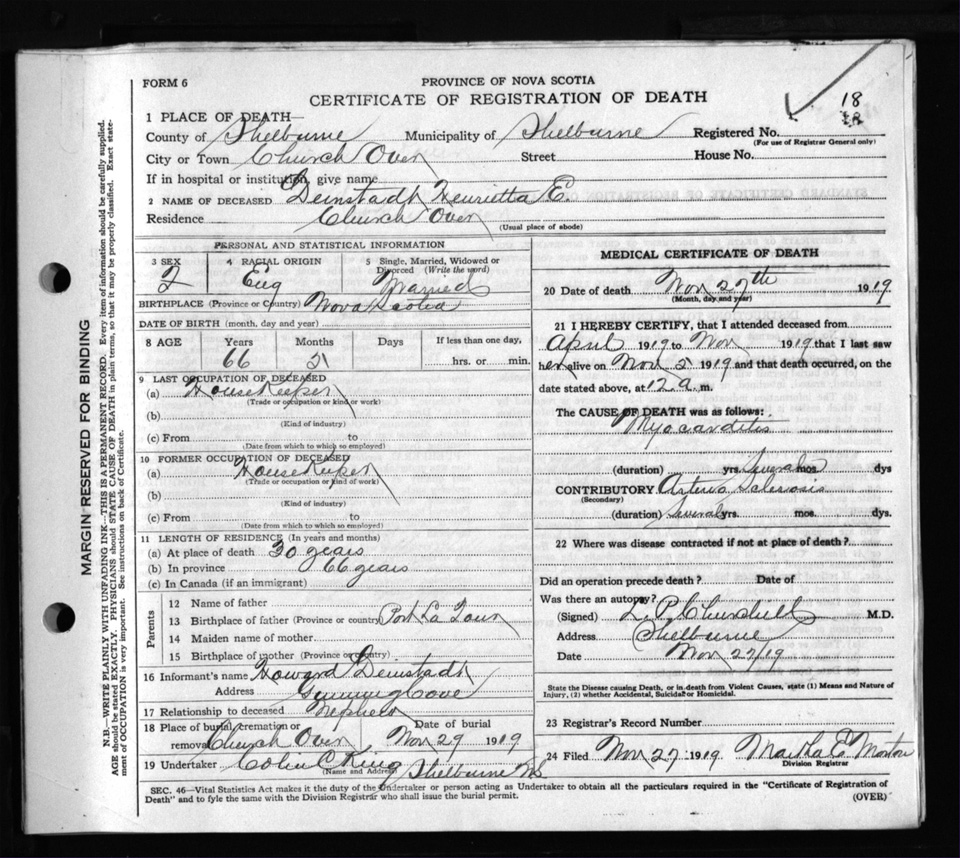 FORM 6
PROVINCE OF NOVA SCOTIA
CERTIFICATE OF REGISTRATION OF DEATH
18
1 PLACE OF DEATH
County of Shelburne Municipality of Shelburne Registered No.
(For use of Registrar General only)
City or Town Church Over Street House No.
If in hospital or institution, give name
2 NAME OF DECEASED Deinstadt Henrietta E.
Residence Church Over
(Usual place of abode)
PERSONAL AND STATISTICAL INFORMATION
3 SEX 4 RACIAL ORIGIN 5 Single, Married, Widowed or Divorced (Write the word)
Eng Married
BIRTHPLACE (Province or Country) Nova Scotia
DATE OF BIRTH (month, day and year)
8 AGE Years Months Days If less than one day,
66 5 hrs. or min.
9 LAST OCCUPATION OF DECEASED
(a) HouseKeeper
(Trade or occupation or kind or work)
(b)
(Kind of industry)
(c) From to
(Date from which to which so employed)
10 FORMER OCCUPATION OF DECEASED
(a) HouseKeeper
(Trade or occupation or kind of work)
(b)
(Kind of industry)
(c) From to
(Date from which to which so employed)
11 LENGTH OF RESIDENCE (In years and months)
(a) At place of death 30 years
(b) In province 66 years
(c) In Canada (if an immigrant)
Parents
12 Name of father
13 Birthplace of father (Province or country) Port La Tour
14 Maiden name of mother
15 Birthplace of mother (Province or country)
16 Informant's name Howard Deinstadt
Address Gunning Cove
17 Relationship to deceased Nephew
18 Place of burial, cremation or Date of burial
removal Church Over Nov 29 1919
19 Undertaker Colin C King Shelburne NS
(Name and Address)
MEDICAL CERTIFICATE OF DEATH
20 Date of death Nov 27th 1919
(Month, day and year)
21 I HEREBY CERTIFY, that I attended deceased from
April 1919 to Nov 1919 that I last saw
her alive on Nov 5 1919 and that death occurred, on the
date stated above, at 12 a. m.
The CAUSE OF DEATH was as follows:
Myocarditis
(duration) yrs. Several mos dys
CONTRIBUTORY Arterio Sclerosis
(Secondary)
(duration) Several yrs. mos. dys.
22 Where was disease contracted if not at place of death?
Did an operation precede death? Date of
Was there an autopsy?
(Signed) L. P. Churchill M.D.
Address Shelburne
Date Nov 27/19
State the Disease causing Death, or in death from Violent Causes, state (1) Means and Nature of
Injury, (2) whether Accidental, Suicidal or Homicidal.
23 Registrar's Record Number
24 Filed Nov 27 1919 Martha E. Morton
Division Registrar
SEC. 46—Vital Statistics Act makes it the duty of the Undertaker or person acting as Undertaker to obtain all the particulars required in the "Certificate of Registration of
Death" and to fyle the same with the Division Registrar who shall issue the burial permit.
(OVER)
MARGIN RESERVED FOR BINDING
N.B.—WRITE PLAINLY WITH UNFADING INK—THIS IS A PERMANENT RECORD. Every item of information should be carefully supplied.
AGE should be stated EXACTLY. PHYSICIANS should STATE CAUSE OF DEATH in plain terms, so that it may be properly classified. Exact state-
ment of OCCUPATION is very important. See instructions on back of Certificate.